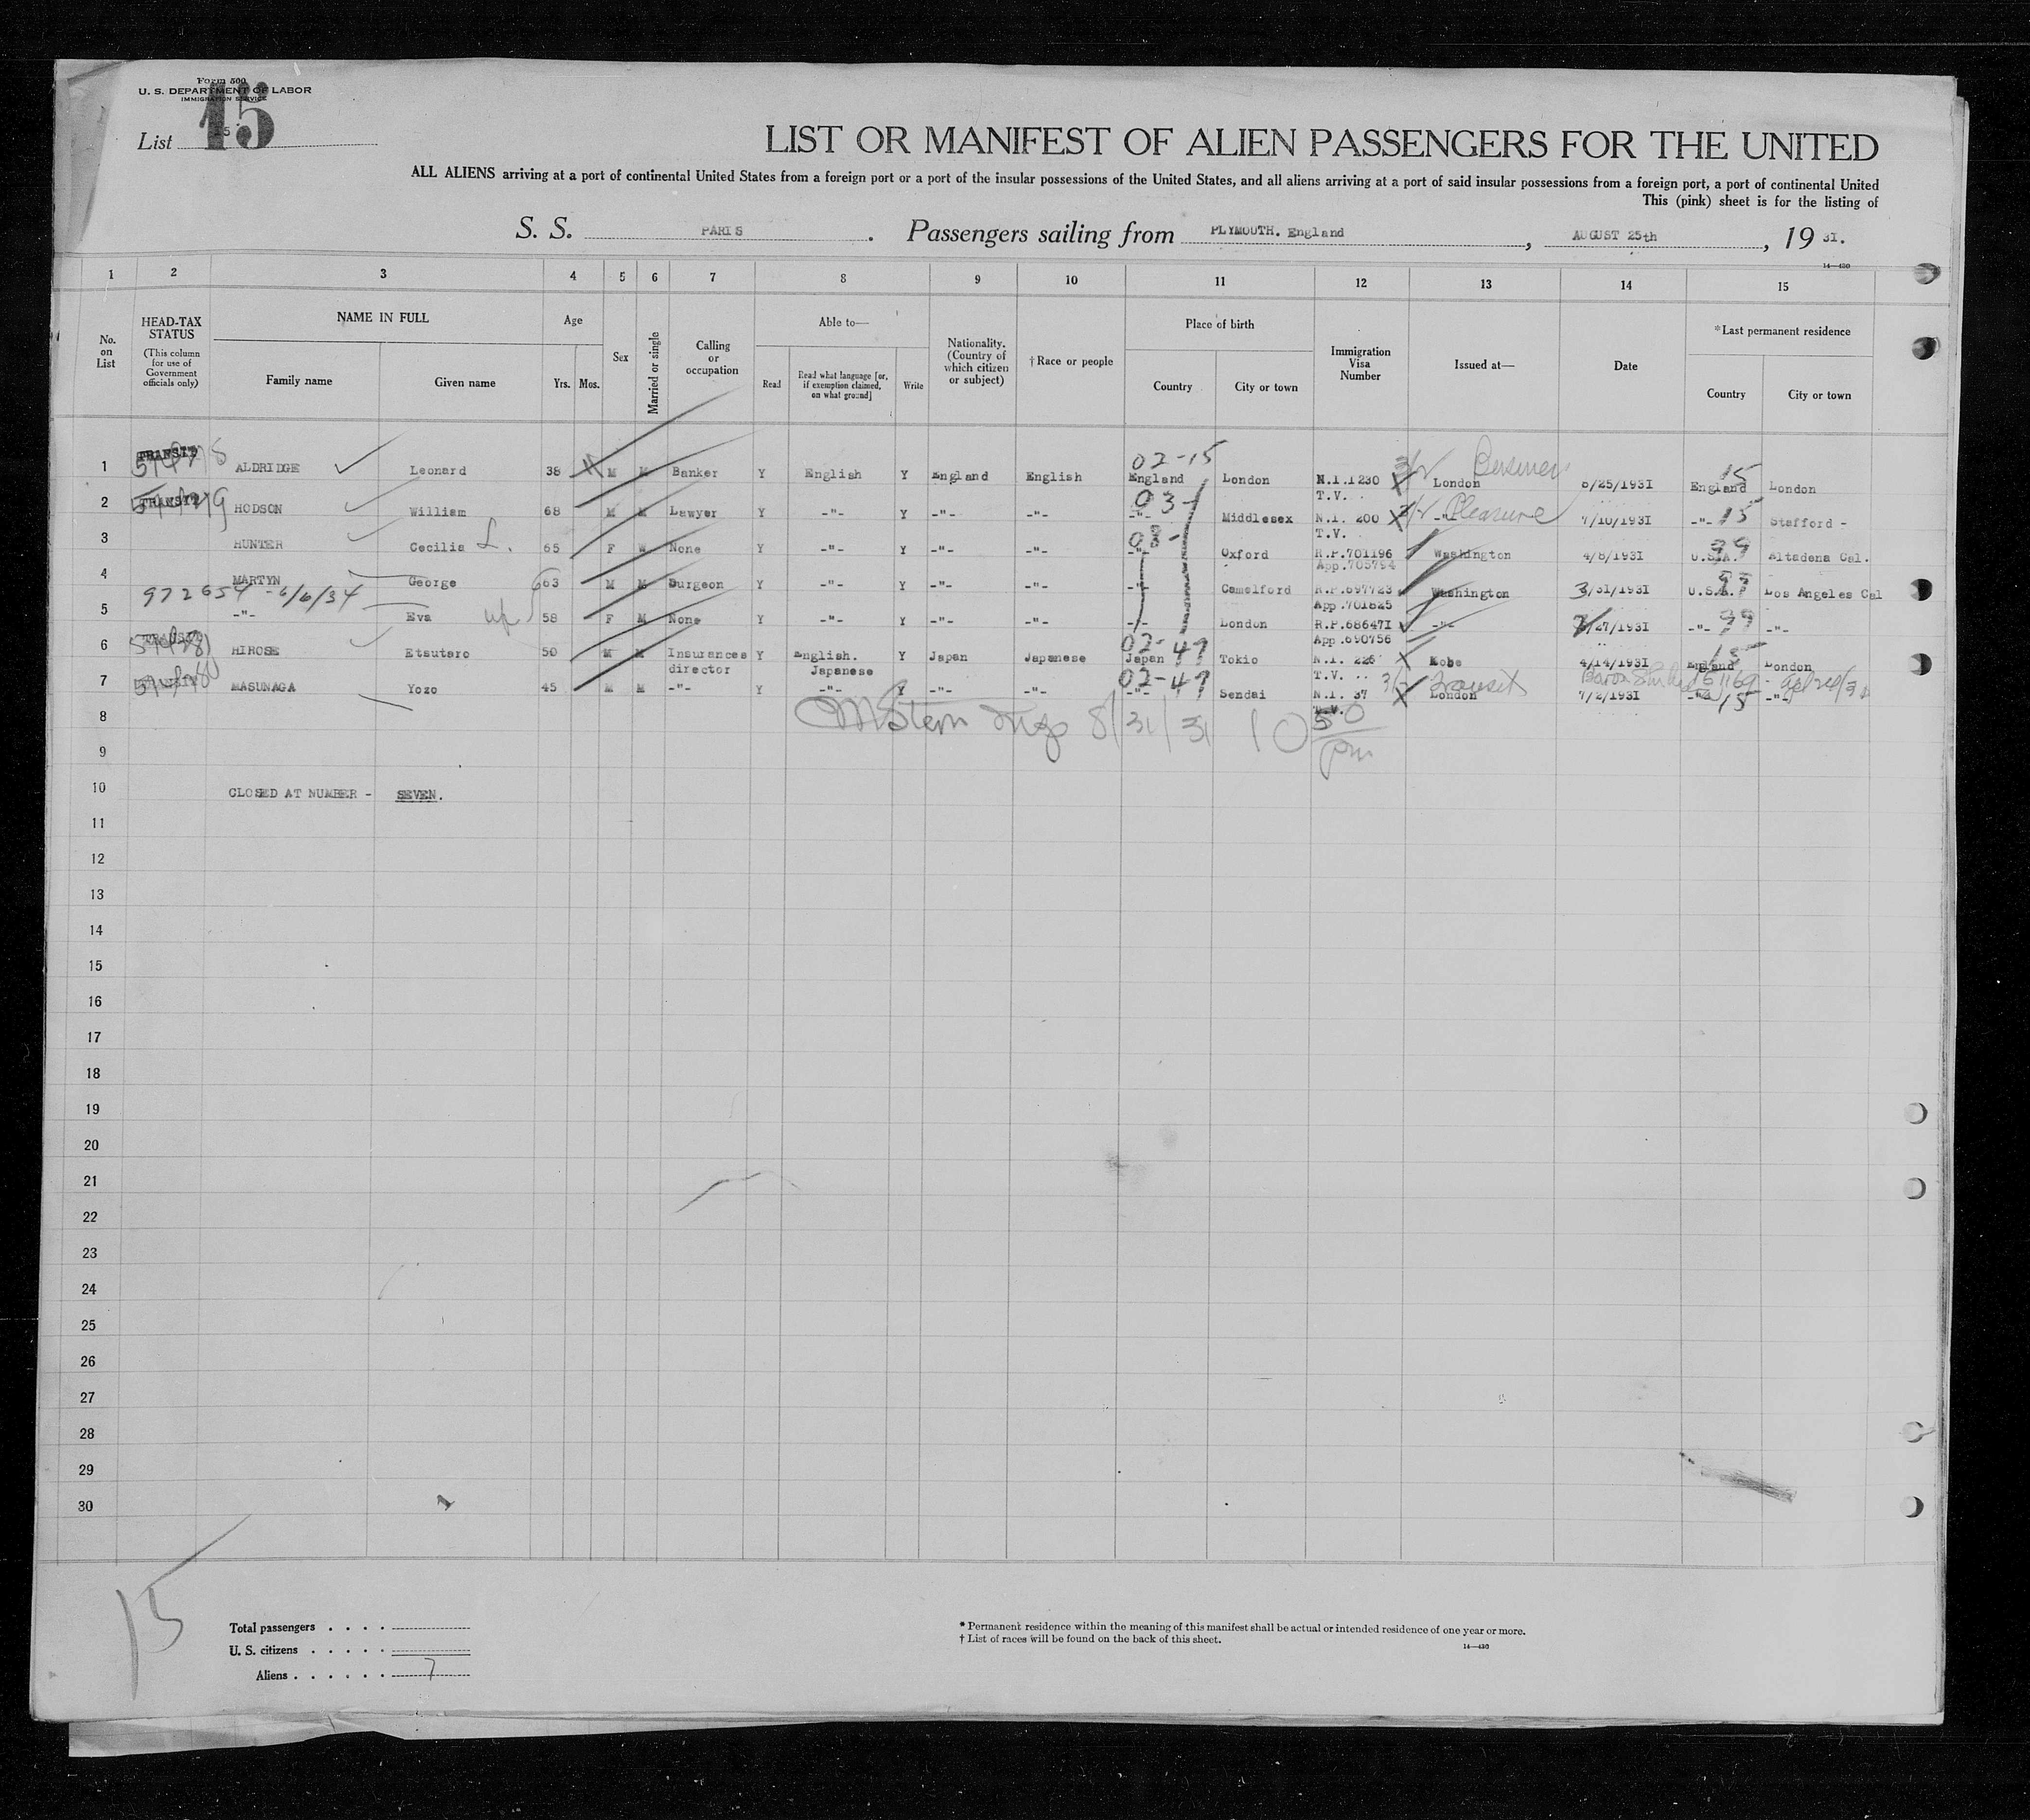 Form 500
U. S. DEPARTMENT OF LABOR
IMMIGRATION SERVICE
List 15
15
LIST OR MANIFEST OF ALIEN PASSENGERS FOR THE UNITED
ALL ALIENS arriving at a port of continental United States from a foreign port or a port of the insular possessions of the United States, and all aliens arriving at a port of said insular possessions from a foreign port, a port of continental United
This (pink) sheet is for the listing of
S. S. PARIS. Passengers sailing from PLYMOUTH. England, AUGUST 25th, 19 31.
14—430
1 2 3 4 5 6 7 8 9 10 11 12 13 14 15
No. on List
HEAD-TAX STATUS
(This column for use of Government officials only)
NAME IN FULL
Family name
Given name
Age
Yrs. Mos.
Sex
Married or single
Calling or occupation
Able to—
Read
Read what language [or, if exemption claimed, on what ground]
Write
Nationality. (Country of which citizen or subject)
†Race or people
Place of birth
Country
City or town
Immigration Visa Number
Issued at—
Date
*Last permanent residence
Country
City or town
02-15 Business 15
1 TRANSIT ALDRIDGE Leonard 38 M M Banker Y English Y England English England London N.I.1230 London 8/25/1931 England London
T.V.
2 TRANSIT HODSON William 68 M M Lawyer Y -"- Y -"- -"- 03- -"- Middlesex N.I. 200 -"- Pleasure 7/10/1931 -"- 15 Stafford -
T.V.
3 HUNTER Cecilia L. 65 F W None Y -"- Y -"- -"- 03- -"- Oxford R.P.701196 Washington 4/8/1931 U.S.A. 99 Altadena Cal.
App.705794
4 MARTYN George 63 M M Surgeon Y -"- Y -"- -"- -"- Camelford R.P.697723 Washington 3/31/1931 U.S.A. 99 Los Angeles Cal
972654 - 6/6/34
App.701825
5 -"- Eva 58 F M None Y -"- Y -"- -"- -"- London R.P.686471 -"- 2/27/1931 -"- 99 -"-
App.690756
02-47 15
6 TRANSIT HIROSE Etsutaro 50 M M Insurances director Y English. Japanese Y Japan Japanese Japan Tokio N.I. 226 Kobe 4/14/1931 England London
T.V.
02-47 Transit
7 TRANSIT MASUNAGA Yozo 45 M M -"- Y -"- Y -"- -"- -"- Sendai N.I. 37 London 7/2/1931 -"- 15 -"-
T.V.
8 Stern Insp 8/31/31 10 50 pm
9
10 CLOSED AT NUMBER - SEVEN.
11
12
13
14
15
16
17
18
19
20
21
22
23
24
25
26
27
28
29
30
15
Total passengers . . . .
U. S. citizens . . . . .
Aliens . . . . . . 7
* Permanent residence within the meaning of this manifest shall be actual or intended residence of one year or more.
† List of races will be found on the back of this sheet.
14—430